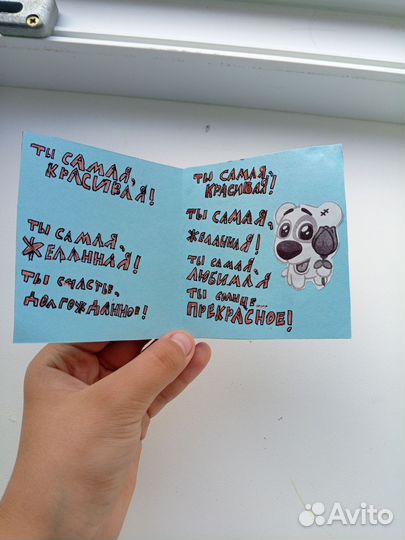 ты САМАЯ,
КРАСИВАЯ!
ТЫ САМАЯ,
ЖЕЛАННАЯ!
ТЫ СЧАСТЬЕ,
ДОЛГОЖДАННОЕ!
ТЫ САМАЯ,
КРАСИВАЯ!
ТЫ САМАЯ,
ЖЕЛАННАЯ!
ТЫ САМАЯ,
ЛЮБИМАЯ
ТЫ СОЛНЦЕ....
ПРЕКРАСНОЕ!
Avito